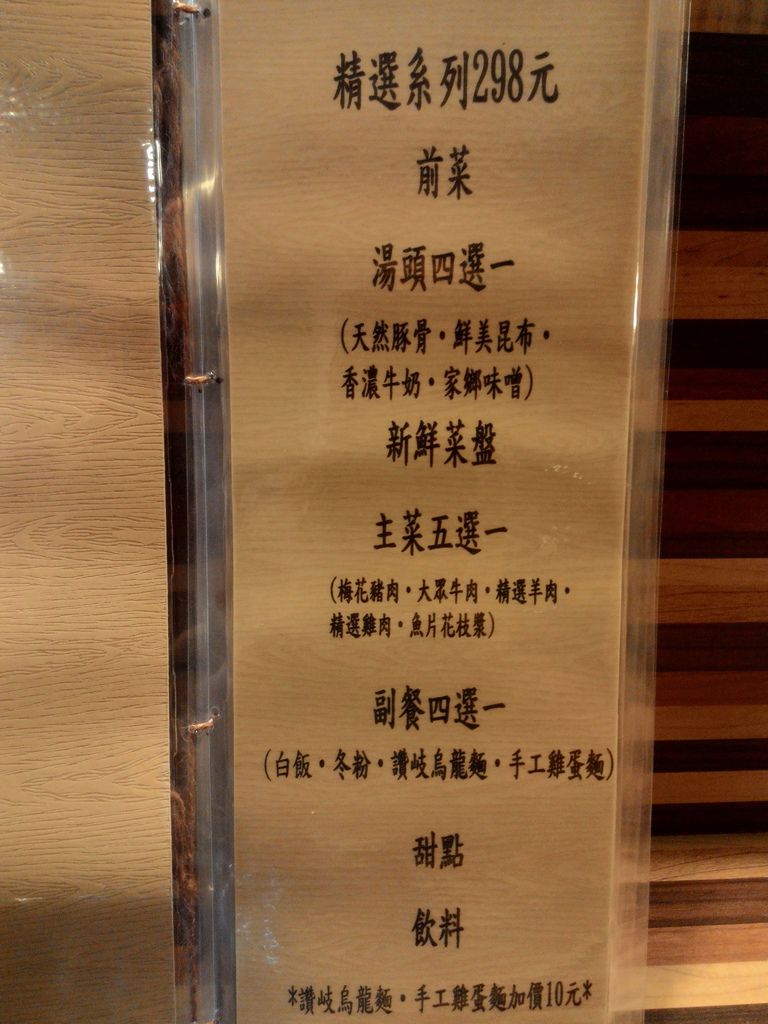 精選系列298元
前菜
湯頭四選一
(天然豚骨・鮮美昆布・
香濃牛奶・家鄉味噌)
新鮮菜盤
主菜五選一
(梅花豬肉・大眾牛肉・精選羊肉・
精選雞肉・魚片花枝漿)
副餐四選一
(白飯・冬粉・讚岐烏龍麵・手工雞蛋麵)
甜點
飲料
*讚岐烏龍麵・手工雞蛋麵加價10元*